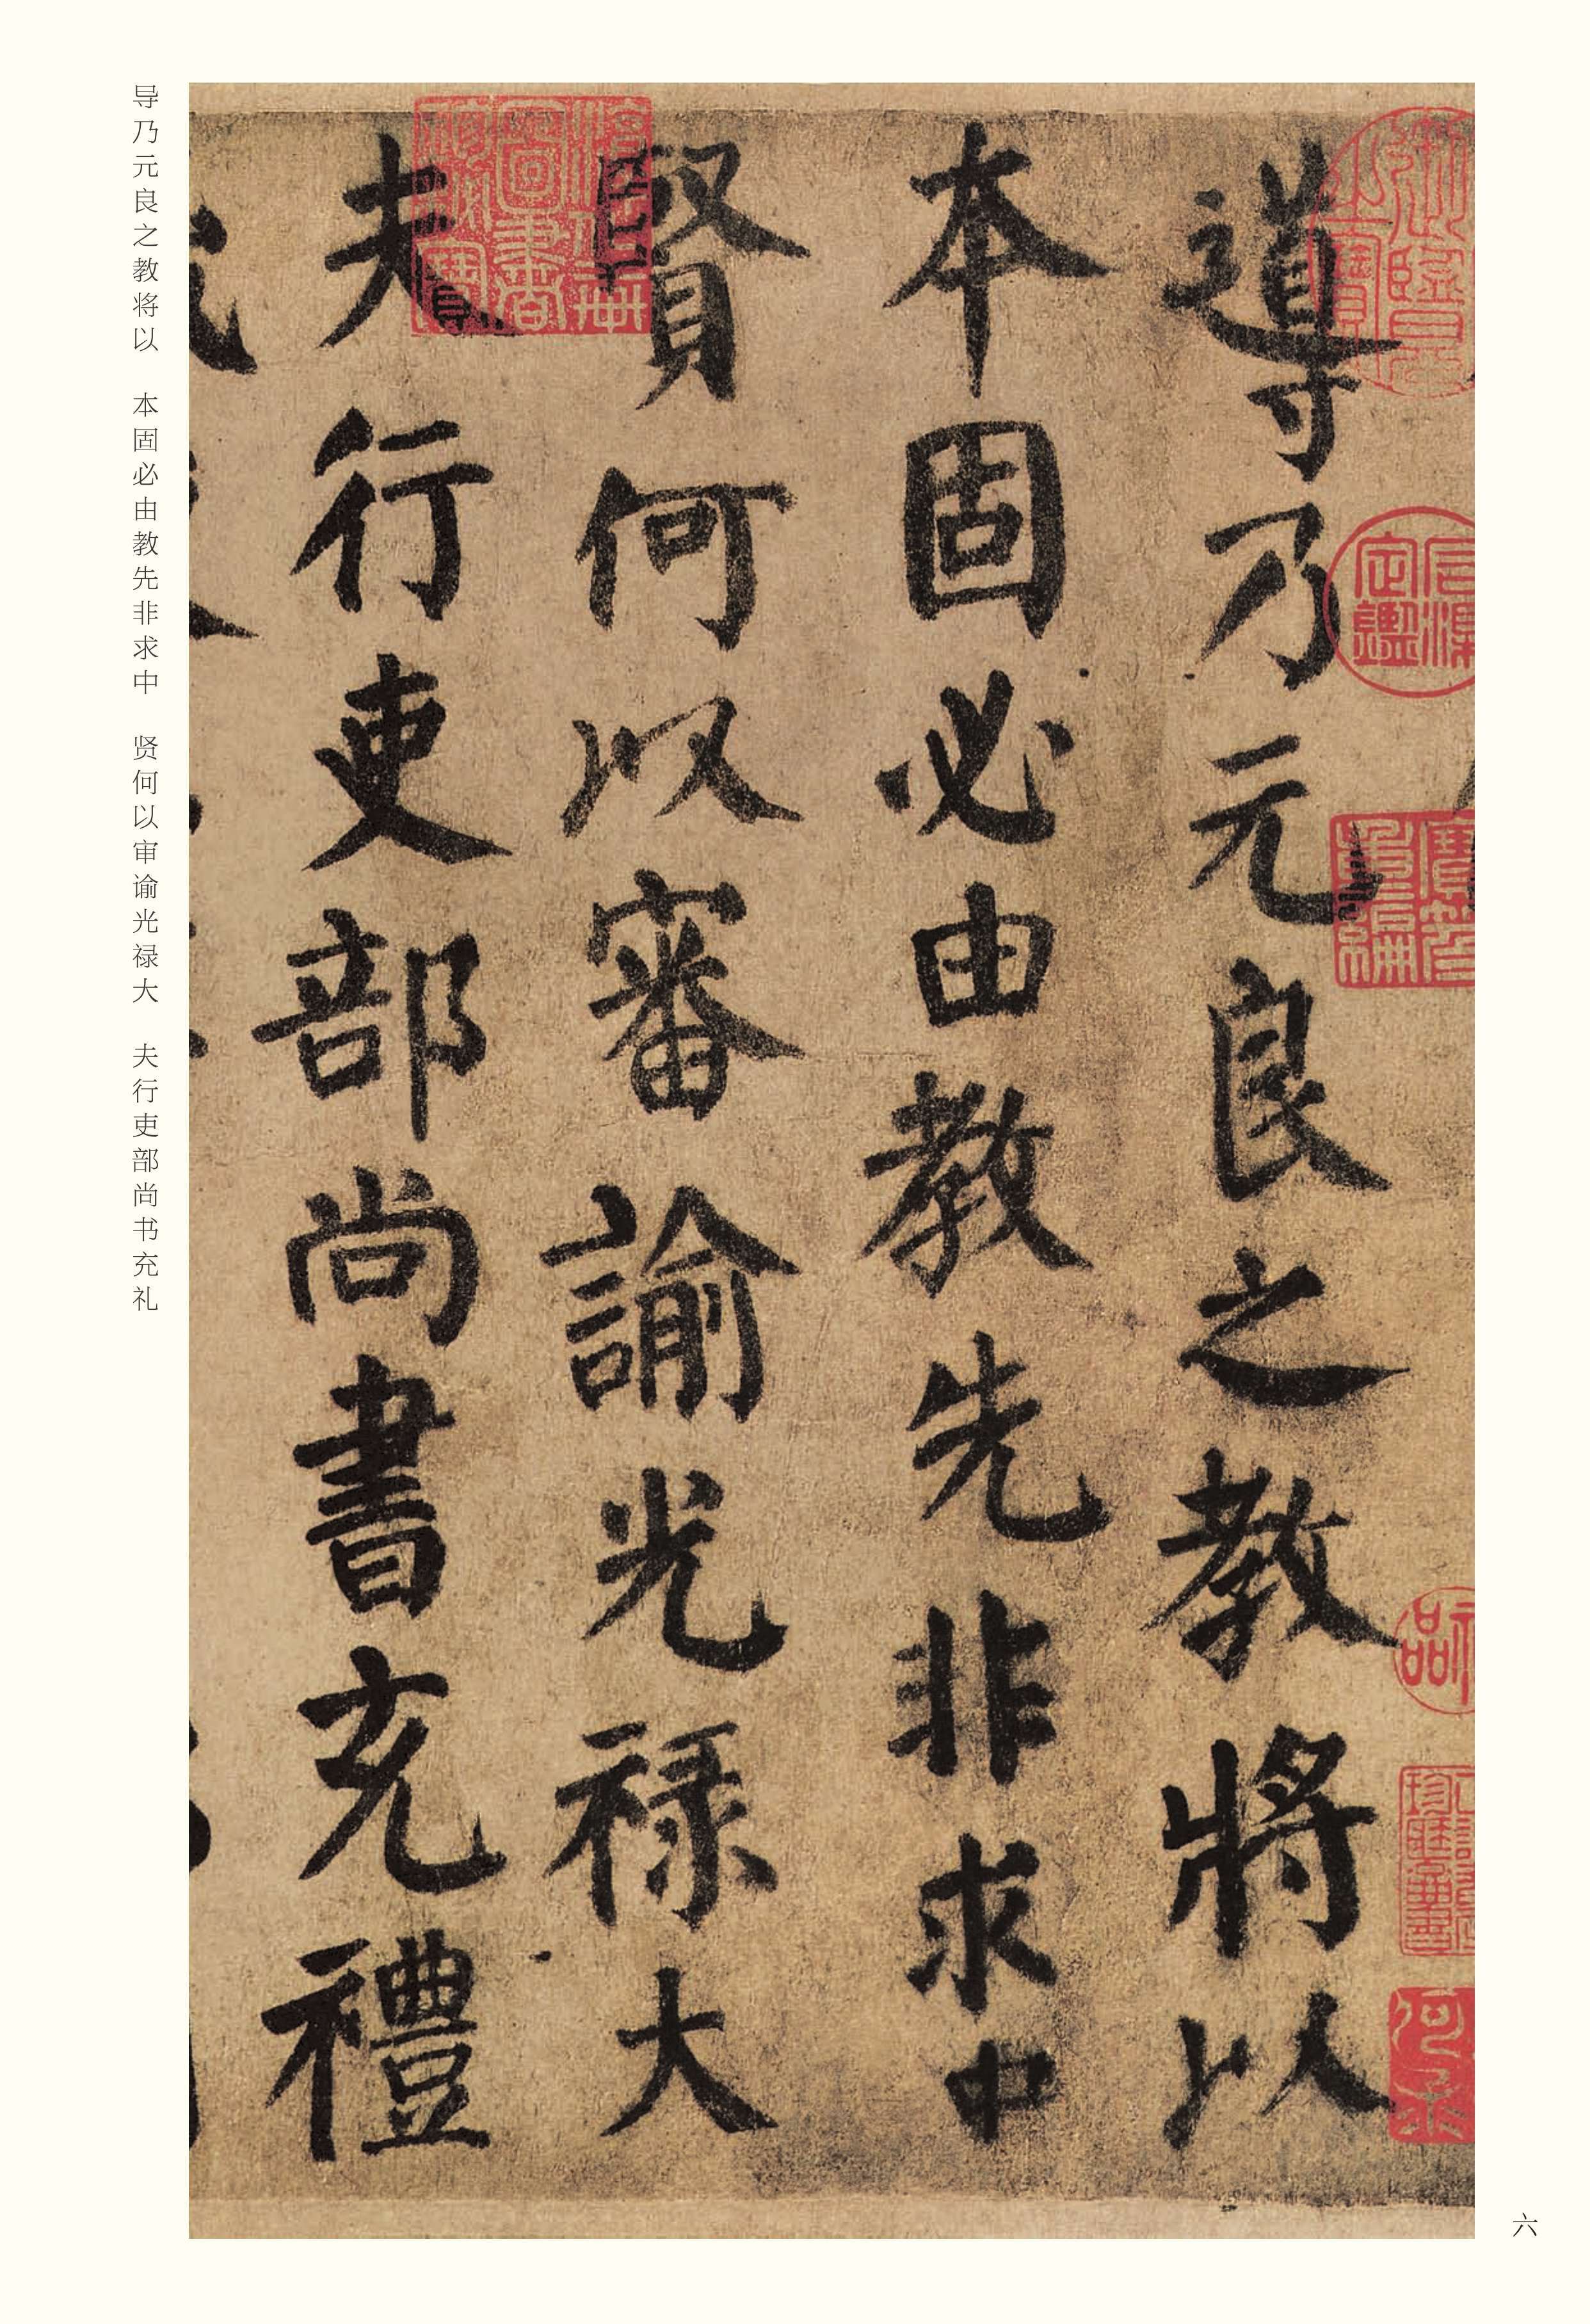 導乃元良之教將以
本固必由教先非求中
賢何以審諭光禄大
夫行吏部尚書充禮
导乃元良之教将以 本固必由教先非求中 贤何以审谕光禄大 夫行吏部尚书充礼
六